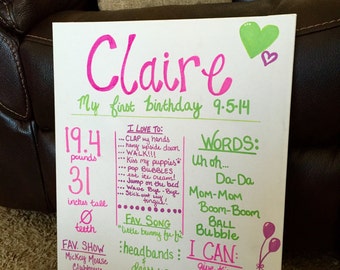 Claire
My first birthday 9-5-14
19.4
pounds
31
inches tall
0
teeth
FAV. SHOW
Mickey Mouse
I LOVE TO:
... CLAP my hands
... hang upside down
... WALK!!!
... Kiss my puppies
... pop BUBBLES
... eat ice cream!
... Jump on the bed
... Wave Bye-Bye
... Stick out my
FAV. SONG
"little bunny fu-fu"
headbands
WORDS:
Uh oh...
Da-Da
Mom-Mom
Boom-Boom
BALL
Bubble
I CAN: